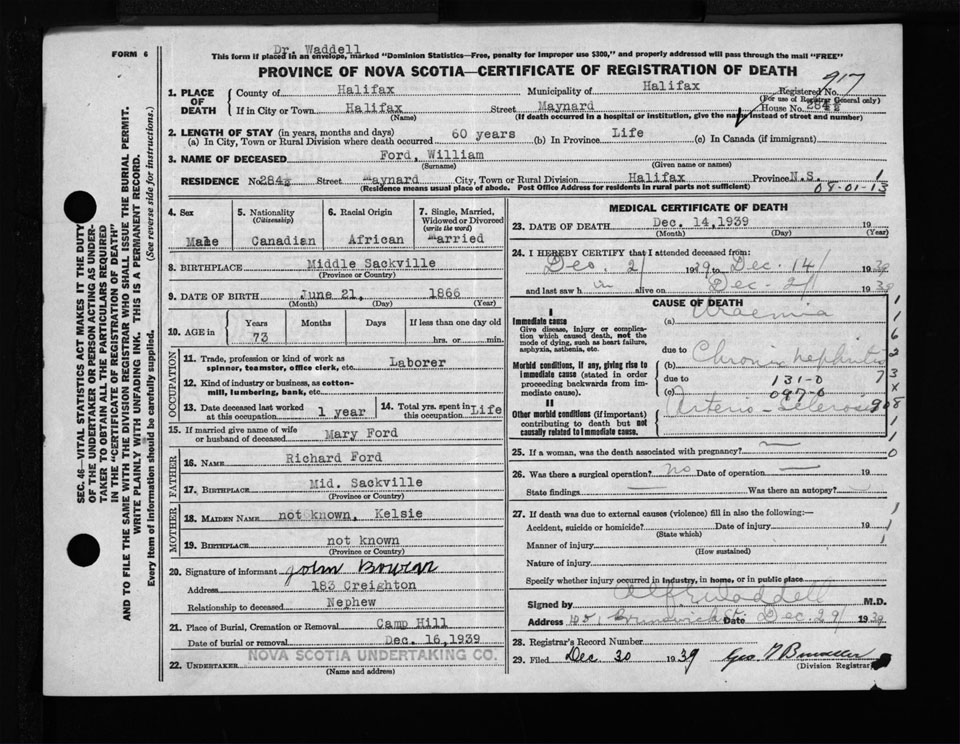 FORM 6
Dr. Waddell
This form if placed in an envelope, marked "Dominion Statistics—Free, penalty for improper use $300," and properly addressed will pass through the mail "FREE"
PROVINCE OF NOVA SCOTIA—CERTIFICATE OF REGISTRATION OF DEATH
917
1. PLACE OF DEATH
County of Halifax Municipality of Halifax Registered No.
(For use of Registrar General only)
If in City or Town Halifax Street Maynard House No. 284½
(Name) (If death occurred in a hospital or institution, give the name instead of street and number)
2. LENGTH OF STAY (in years, months and days)
(a) In City, Town or Rural Division where death occurred 60 years (b) In Province Life (c) In Canada (if immigrant)
3. NAME OF DECEASED Ford, William
(Surname) (Given name or names)
RESIDENCE No. 284½ Street Maynard City, Town or Rural Division Halifax Province N.S. 1
(Residence means usual place of abode. Post Office Address for residents in rural parts not sufficient) 08-01-13
4. Sex Male
5. Nationality (Citizenship) Canadian
6. Racial Origin African
7. Single, Married, Widowed or Divorced (write the word) Married
8. BIRTHPLACE Middle Sackville
(Province or Country)
9. DATE OF BIRTH June 21, 1866
(Month) (Day) (Year)
10. AGE in Years Months Days If less than one day old
73 hrs. or min.
OCCUPATION
11. Trade, profession or kind of work as spinner, teamster, office clerk, etc. Laborer
12. Kind of industry or business, as cotton-mill, lumbering, bank, etc.
13. Date deceased last worked at this occupation 1 year
14. Total yrs. spent in this occupation Life
15. If married give name of wife or husband of deceased Mary Ford
FATHER
16. NAME Richard Ford
17. BIRTHPLACE Mid. Sackville
(Province or Country)
MOTHER
18. MAIDEN NAME not known, Kelsie
19. BIRTHPLACE not known
(Province or Country)
20. Signature of informant John Bowen
Address 183 Creighton
Relationship to deceased Nephew
21. Place of Burial, Cremation or Removal Camp Hill
Date of burial or removal Dec. 16, 1939
22. UNDERTAKER NOVA SCOTIA UNDERTAKING CO.
(Name and address)
MEDICAL CERTIFICATE OF DEATH
23. DATE OF DEATH Dec. 14, 1939 19
(Month) (Day) (Year)
24. I HEREBY CERTIFY that I attended deceased from:
Dec. 2/ 1939 to Dec-14/ 1939
and last saw him alive on Dec-2/ 1939
CAUSE OF DEATH
I
Immediate cause (a) Uraemia
Give disease, injury or complication which caused death, not the mode of dying, such as heart failure, asphyxia, asthenia, etc.
due to
(b) Chronic nephritis
Morbid conditions, if any, giving rise to immediate cause (stated in order proceeding backwards from immediate cause).
due to 131-0
(c) 097-0
II
Arterio-sclerosis
Other morbid conditions (if important) contributing to death but not causally related to immediate cause.
25. If a woman, was the death associated with pregnancy? —
26. Was there a surgical operation? no Date of operation — 19
State findings — Was there an autopsy?
27. If death was due to external causes (violence) fill in also the following:—
Accident, suicide or homicide? Date of injury 19
(State which)
Manner of injury
(How sustained)
Nature of injury
Specify whether injury occurred in industry, in home, or in public place
Signed by Alf E Waddell M.D.
Address Brunswick St Date Dec-29/ 1939
28. Registrar's Record Number
29. Filed Dec 30 1939
(Division Registrar)
SEC. 46—VITAL STATISTICS ACT MAKES IT THE DUTY
OF THE UNDERTAKER OR PERSON ACTING AS UNDER-
TAKER TO OBTAIN ALL THE PARTICULARS REQUIRED
IN THE "CERTIFICATE OF REGISTRATION OF DEATH"
AND TO FILE THE SAME WITH THE DIVISION REGISTRAR WHO SHALL ISSUE THE BURIAL PERMIT.
WRITE PLAINLY WITH UNFADING INK. THIS IS A PERMANENT RECORD.
Every item of information should be carefully supplied. (See reverse side for instructions.)